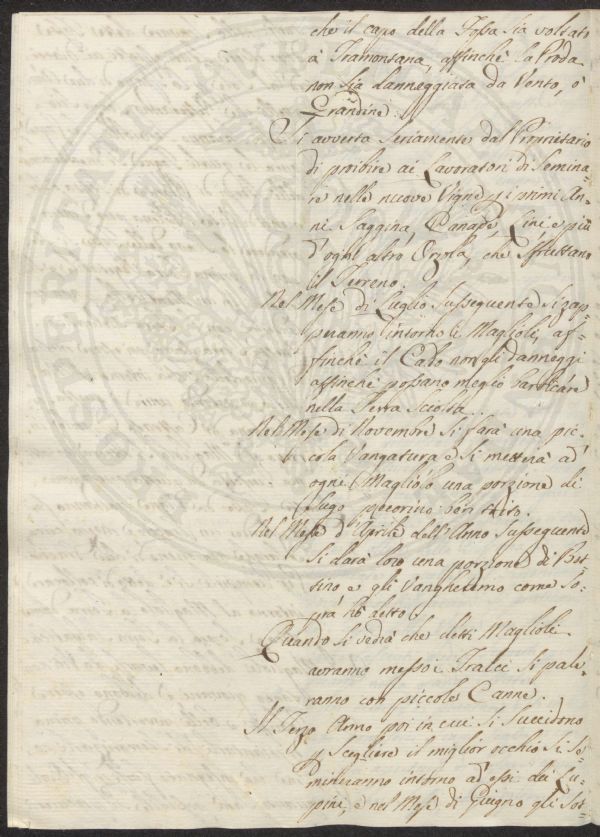 che il capo della Fossa sia voltato
à Tramontana, affinchè la Proda
non sia danneggiata da Vento, ò
Grandine.
Si averta seriamente dal Proprietario
di proibire ai Lavoratori di semina-
re nelle nuove Vigne i primi An-
ni Saggina, Lini e più
d'ogni altro Orzola, che sfruttano
il Terreno.
Nel Mese di Luglio susseguente si zap-
peranno intorno li Maglioli, af-
finchè il Caldo non gli danneggi
affinchè possano meglio barbicare
nella Terra sciolta.
Nel Mese di Novembre si farà una pic-
cola Vangatura e si metterà ad
ogni Magliolo una porzione di
Sugo pecorino ben trito.
Nel Mese d'Aprile dell'Anno susseguente
si darà loro una porzione di Bot-
tino e gli Vangheremo come so-
pra hò detto.
Quando si vedrà che detti Maglioli
avranno messo i Tralci si pale-
ranno con piccole Canne.
Il Terzo Anno poi in cui si succidono
p scegliere il miglior occhio si se-
mineranno intorno ad essi dei Lu-
pini, e nel Mese di Giugno gli sot-